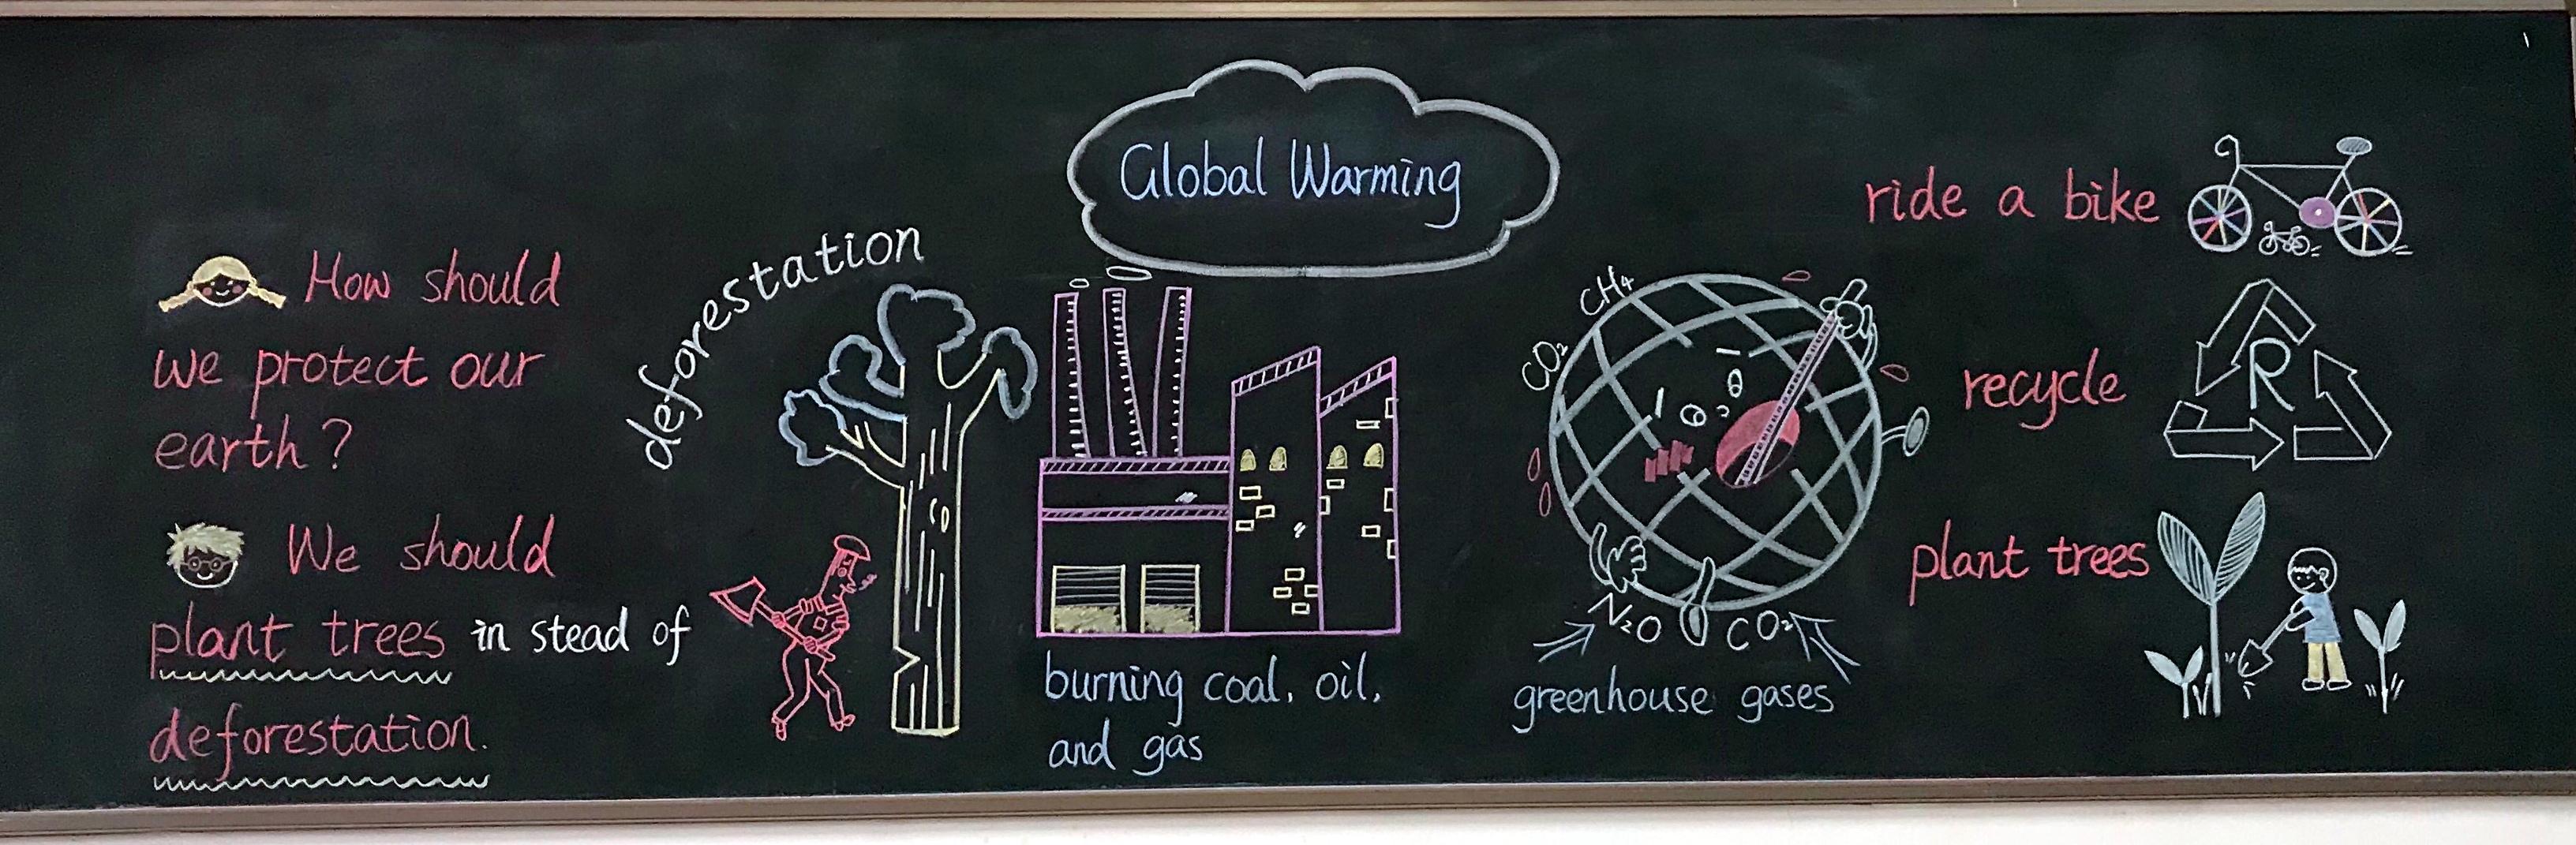 Global Warming
How should
we protect our
earth?
We should
plant trees in stead of
deforestation.
deforestation
burning coal, oil,
and gas
CH₄
CO₂
N₂O
CO₂
greenhouse gases
ride a bike
recycle
R
plant trees